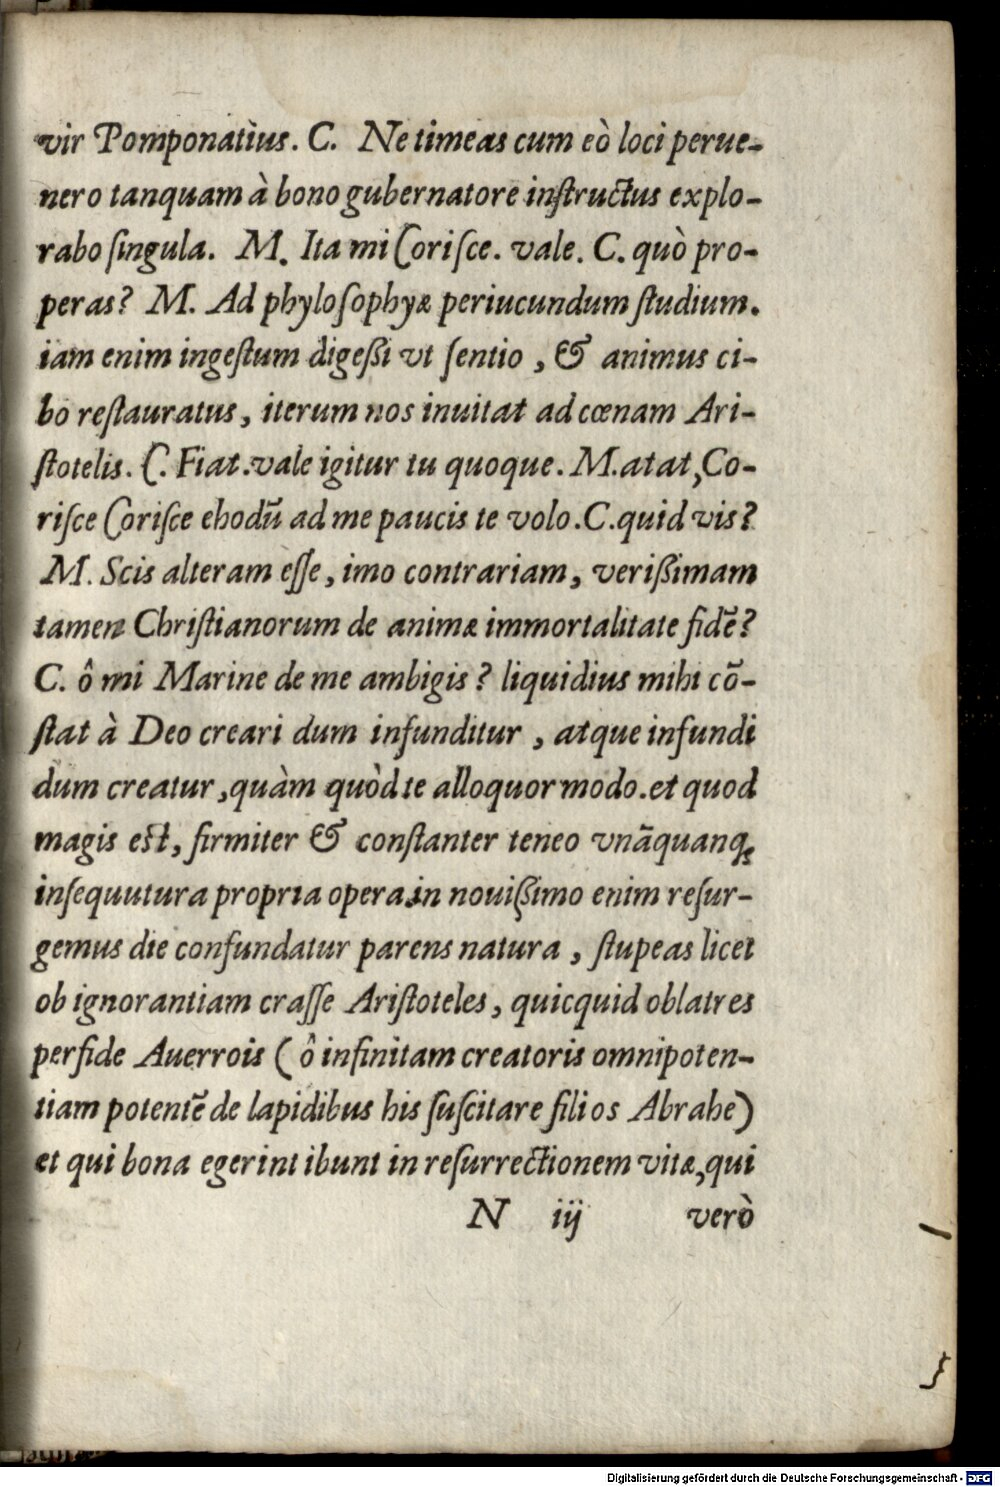 vir Pomponatius. C. Ne timeas cum eò loci perue-
nero tanquam à bono gubernatore instructus explo-
rabo singula. M. Ita mi Corisce. vale. C. quò pro-
peras? M. Ad phylosophyæ periucundum studium.
iam enim ingestum digeßi vt sentio, & animus ci-
bo restauratus, iterum nos inuitat ad cœnam Ari-
stotelis. C. Fiat. vale igitur tu quoque. M. atat, Co-
risce Corisce ehodũ ad me paucis te volo. C. quid vis?
M. Scis alteram esse, imo contrariam, verißimam
tamen Christianorum de animæ immortalitate fidẽ?
C. ô mi Marine de me ambigis? liquidius mihi cõ-
stat à Deo creari dum infunditur, atque infundi
dum creatur, quàm quòd te alloquor modo. et quod
magis est, firmiter & constanter teneo vnãquanq;
insequutura propria opera. in nouißimo enim resur-
gemus die confundatur parens natura, stupeas licet
ob ignorantiam crasse Aristoteles, quicquid oblatres
perfide Auerrois (ô infinitam creatoris omnipoten-
tiam potentẽ de lapidibus his suscitare filios Abrahe)
et qui bona egerint ibunt in resurrectionem vitæ, qui
N iij verò
Digitalisierung gefördert durch die Deutsche Forschungsgemeinschaft - DFG